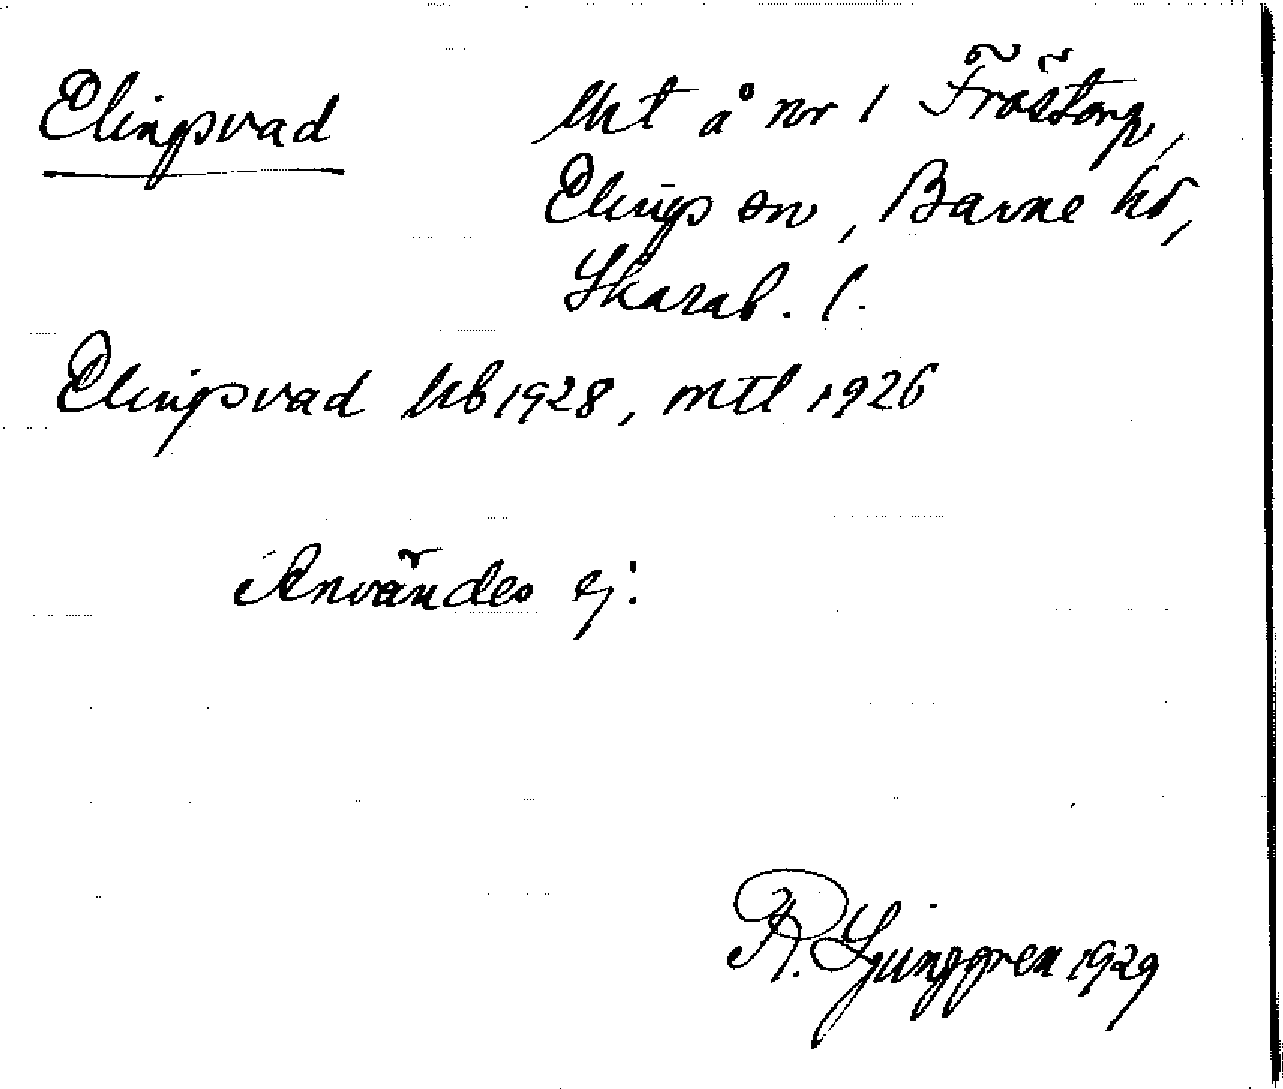 Elingsvad
Lht å nr 1 Fröstorp,
Elings sn, Barne hd,
Skarab. l.
Elingsvad kb 1928, mtl 1926
Användes ej.
R. Ljunggren 1929